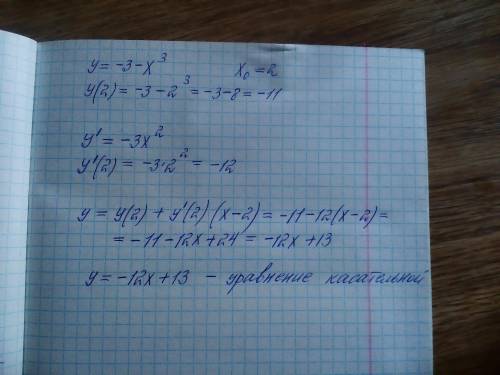 y = -3 - x³ x₀ = 2
y(2) = -3 - 2³ = -3 - 8 = -11
y' = -3x²
y'(2) = -3·2² = -12
y = y(2) + y'(2)(x-2) = -11 - 12(x-2) =
= -11 - 12x + 24 = -12x + 13
y = -12x + 13 - уравнение касательной